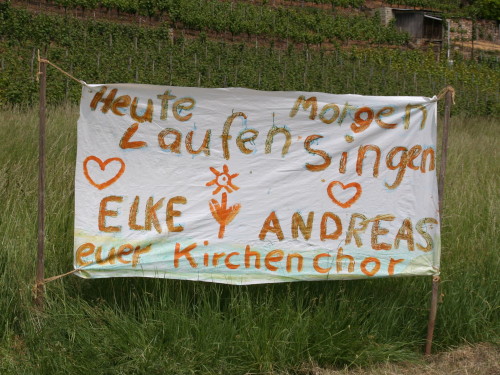 Heute Morgen
Laufen Singen
ELKE ANDREAS
euer Kirchenchor